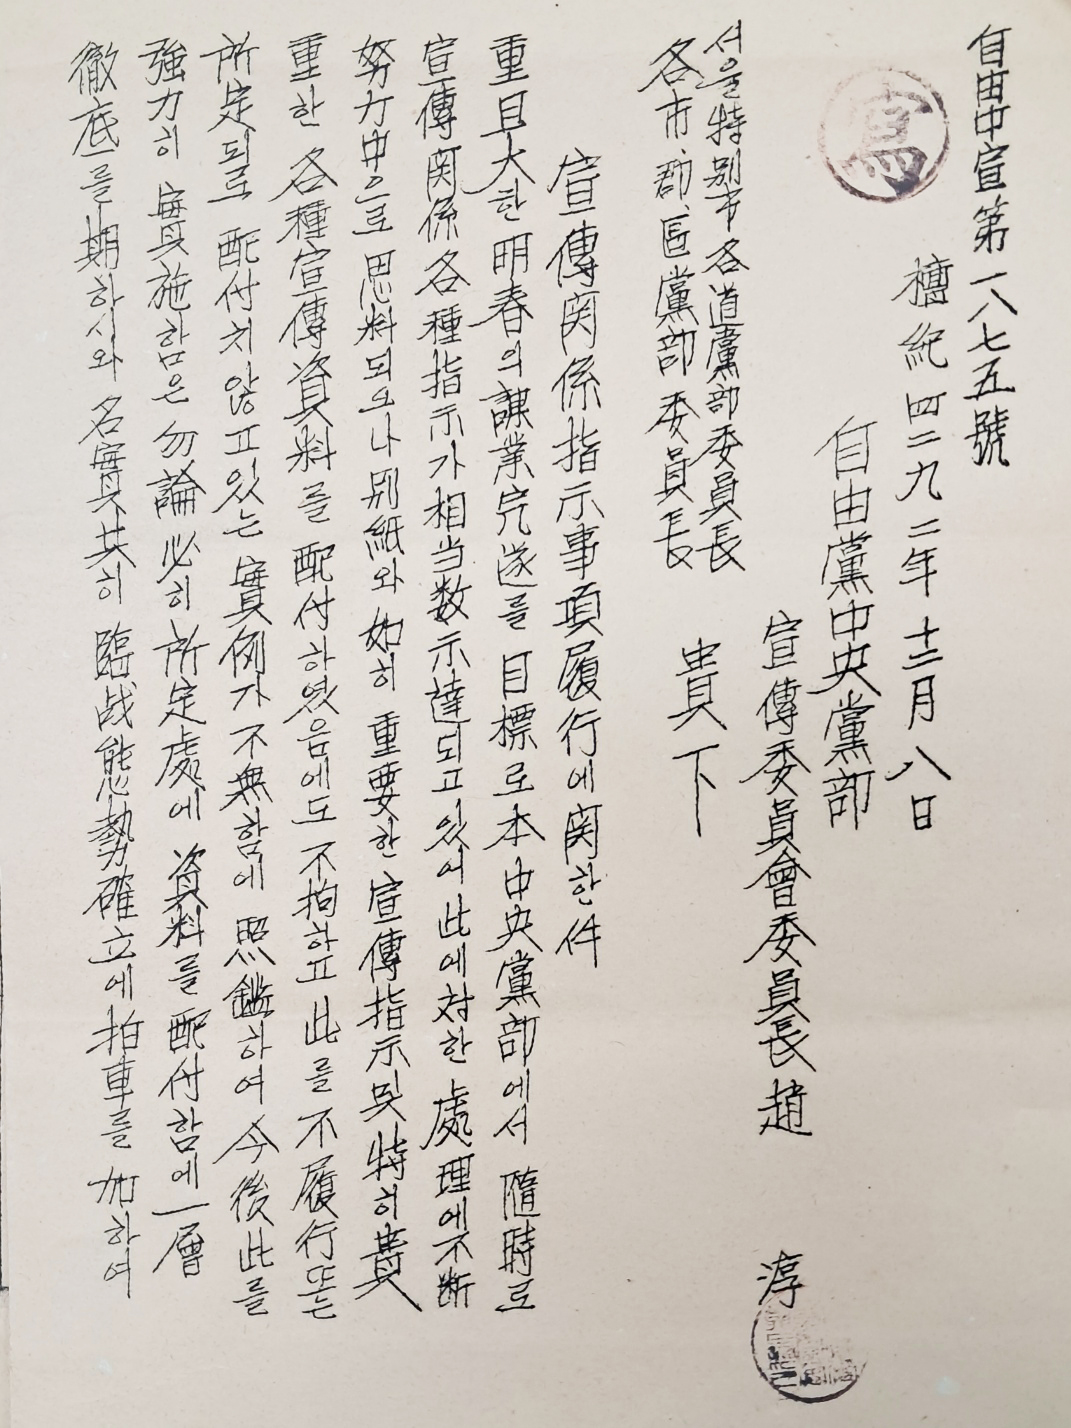 自由中宣第一八七五號
寫
檀紀四二九二年十二月八日
自由黨中央黨部
宣傳委員會委員長 趙 淳
서울特別市各道黨部委員長
各市、郡、區黨部委員長
貴下
宣傳関係指示事項履行에関한件
重且大한明春의課業完遂를目標로本中央黨部에서 隨時로
宣傳関係各種指示가相当数示達되고있어此에対한處理에不断
努力中으로思料되오나別紙와如히重要한宣傳指示및特히貴
重한各種宣傳資料를配付하였음에도不拘하고此를不履行또는
所定되로配付치않고있는實例가不無함에照鑑하여今後此를
強力히實施함은勿論必히所定處에資料를配付함에一層
徹底를期하시와名實共히臨战態勢確立에拍車를加하여